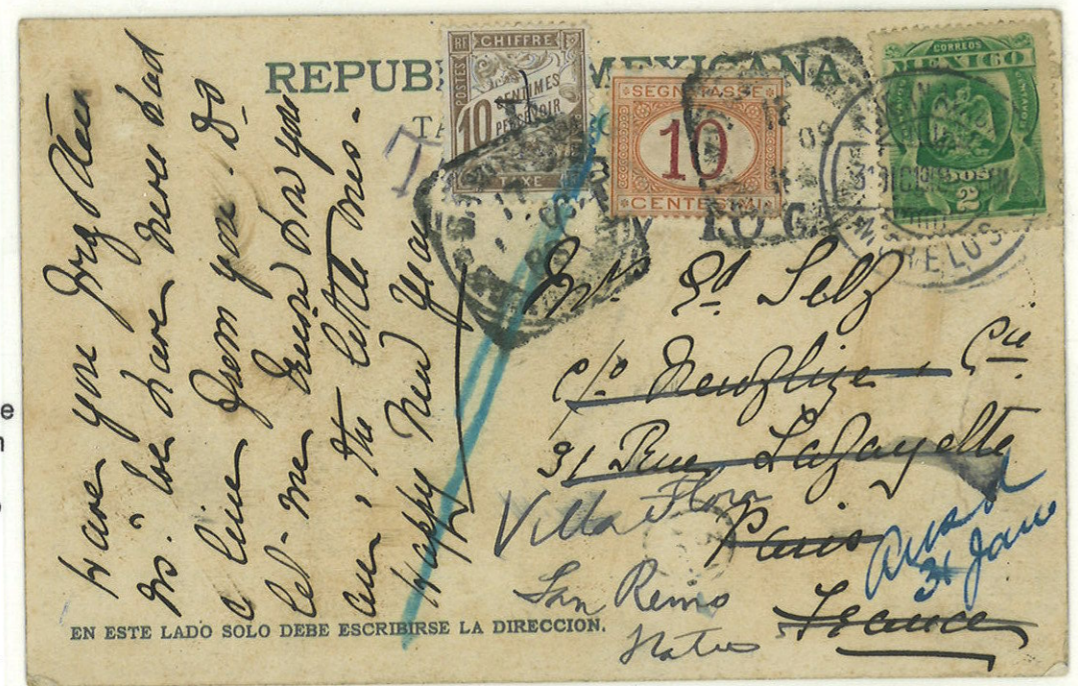 REPUB MEXICANA
TA
T
RF CHIFFRE
POSTES
10 CENTIMES
PERCEVOIR
TAXE
SEGNATASSE
10
CENTESIMI
CORREOS
MEXICO
DOS
2
MORELOS
Have you forgotten
us. We have never had
a line from you. Do
let me know how you
are, the little ones.
Happy New Year
Mr Ed Selz
c/o Neuflize & Cie
31 Rue Lafayette
Paris
France
Villa Flora
San Remo
Ansd
31 Jan
EN ESTE LADO SOLO DEBE ESCRIBIRSE LA DIRECCION.